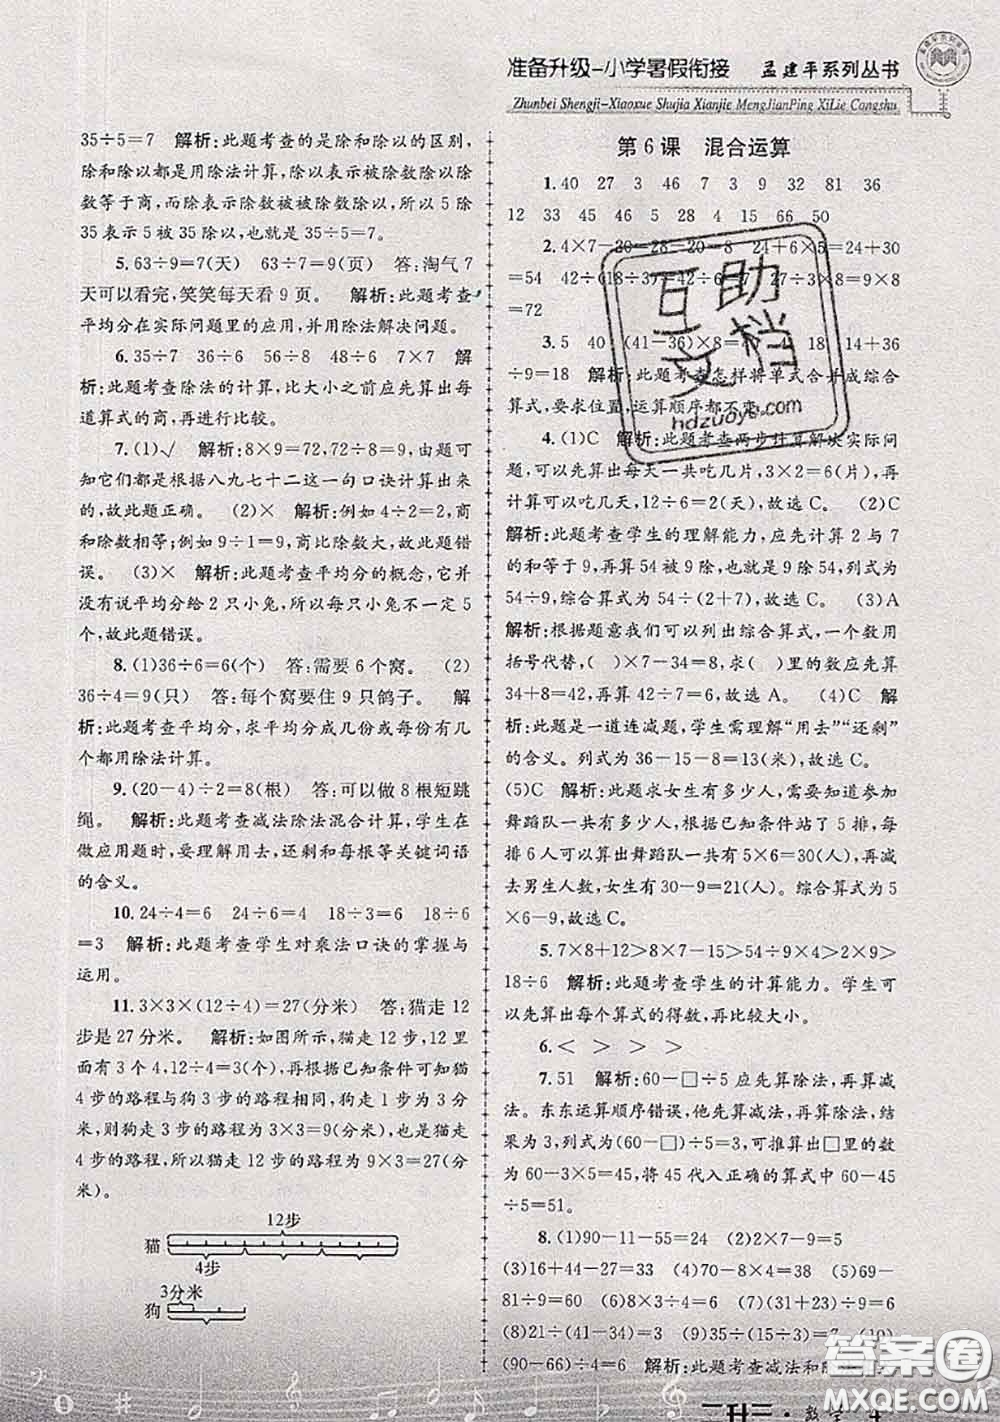 准备升级-小学暑假衔接 孟建平系列丛书
Zhunbei Shengji-Xiaoxue Shujia Xianjie MengJianPing XiLie Congshu
35÷5=7 解析:此题考查的是除和除以的区别,
除和除以都是用除法计算,除以表示被除数除以除
数等于商,而除表示除数被被除数除以,所以 5 除
35 表示 5 被 35 除以,也就是 35÷5=7。
5.63÷9=7(天) 63÷7=9(页) 答:淘气 7
天可以看完,笑笑每天看 9 页。 解析:此题考查
平均分在实际问题里的应用,并用除法解决问题。
6.35÷7 36÷6 56÷8 48÷6 7×7 解
析:此题考查除法的计算,比大小之前应先算出每
道算式的商,再进行比较。
7.(1)√ 解析:8×9=72,72÷8=9,这两个
算式它们都是根据八九七十二这一句口诀计算出来
的,故此题正确。 (2)× 解析:例如 4÷2=2,商
和除数相等;例如 9÷1=9,商比除数大,故此题错
误。 (3)× 解析:此题考查平均分的概念,它并
没有说平均分给 2 只小兔,所以每只小兔不一定 5
个,故此题错误。
8.(1)36÷6=6(个) 答:需要 6 个窝。 (2)
36÷4=9(只) 答:每个窝要住 9 只鸽子。 解
析:此题考查平均分,求平均分成几份或每份有几个
都用除法计算。
9.(20-4)÷2=8(根) 答:可以做 8 根短跳
绳。 解析:此题考查减法除法混合计算,学生在
做应用题时,要理解用去,还剩和每根等关键词语
的含义。
10.24÷4=6 24÷6=4 18÷3=6 18÷6
=3 解析:此题考查学生对乘法口诀的掌握与
运用。
11.3×3×(12÷4)=27(分米) 答:猫走 12
步是 27 分米。 解析:如图所示,猫走 12 步,12 里
面有 3 个 4,12÷4=3(个),再根据已知条件可知猫
4 步的路程与狗 3 步的路程相同,狗走 1 步 3 分米,
则狗走 3 步的路程为 3×3=9(分米),也就是猫走
4 步的路程,所以猫走 12 步的路程为 9×3=27(分
米)。
12步
猫
4步
3分米
狗
第 6 课 混合运算
1.40 27 3 46 7 3 9 32 81 36
12 33 45 5 28 4 15 66 50
2.4×7-20=28-20=8 24+6×5=24+30
=54
=72
3.5 40 (41-36)×8= 4 18 14+36
÷9=18 解析:此题考查怎样将单式合并成综合
算式,要求位置,运算顺序都不变。
4.(1)C 解析:此题考查两步计算解决实际问
题,可以先算出每天一共吃几片,3×2=6(片),再
计算可以吃几天,12÷6=2(天),故选 C。 (2)C
解析:此题考查学生的理解能力,应先计算 2 与 7
的和等于 9,再算 54 被 9 除,也可以算 54÷9,列式为
54÷9,综合算式为 54÷(2+7),故选 C。 (3)A
解析:根据题意我们可以列出综合算式,一个数用
括号代替,( )÷7-34=8,求( )里的数应先算出
34+8=42,再算 42÷7=6,故选 A。 (4)C 解
析:此题是一道连减题,学生需理解“用去”“还剩”
的含义。列式为 36-15-8=13(米),故选 C。
(5)C 解析:此题求女生有多少人,要先知道参加
舞蹈队一共有多少人,根据已知条件站成了 5 排,每
排 6 人可以算出舞蹈队一共有 5×6=30(人),再减
去男生人数,女生有 30-9=21(人)。综合算式为 5
×6-9,故选 C。
5.7×8+12>8×7-15>54÷9×4>2×9>
18÷6 解析:此题考查学生的计算能力。学生可
以先算出每个算式的得数,再比较大小。
6.< > > >
7.51 解析:60-□÷5 应先算除法,再算减
法。东东运算顺序错误,他先算减法,再算除法,结
果为 3,列式为(60-□)÷5=3,可推算出□里的数
为 60-3×5=45,将 45 代入正确的算式中 60-45
÷5=51。
8.(1)90-11-55=24 (2)7×2-9=5
(3)16+44-27=33 (4)70-8×4=38 (5)69-
(8)21÷(45-38)=3
(90-66)÷4=6 解析:此题考查减法和除
互助文档
hdzuoye.com
答案圈
MXQE.COM
二升三·数学